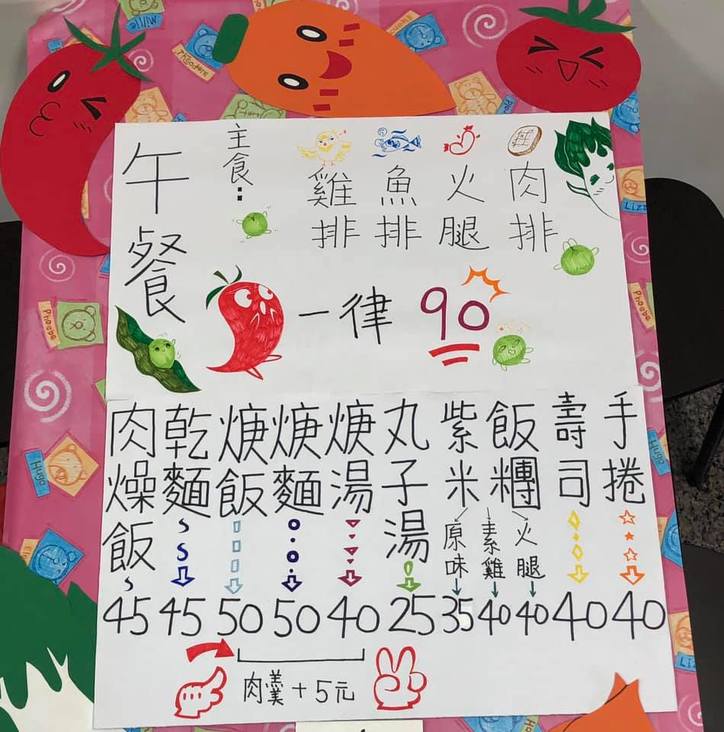 午餐
主食:
雞排
魚排
火腿
肉排
一律 90
肉燥飯 45
乾麵 45
焿飯 50
焿麵 50
焿湯 40
丸子湯 25
紫米飯糰
原味 35
素雞 40
火腿 40
壽司 40
手捲 40
肉羹+5元